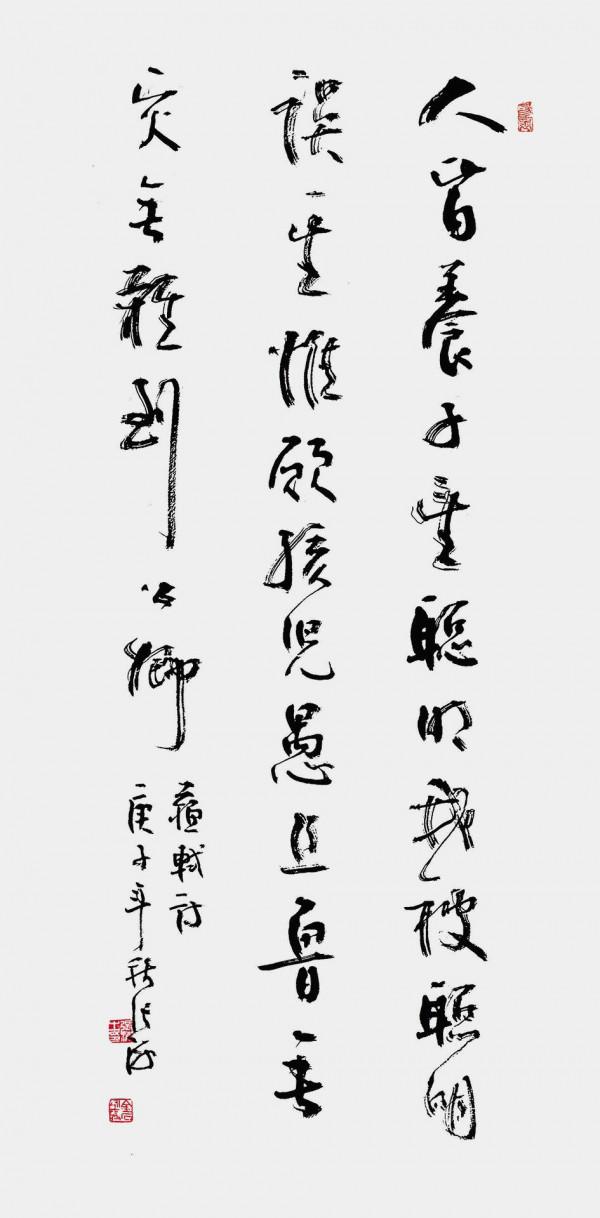 人皆養子望聰明我被聰明
誤一生惟願孩兒愚且魯無
災無難到公卿
蘇軾詩
庚子年秋